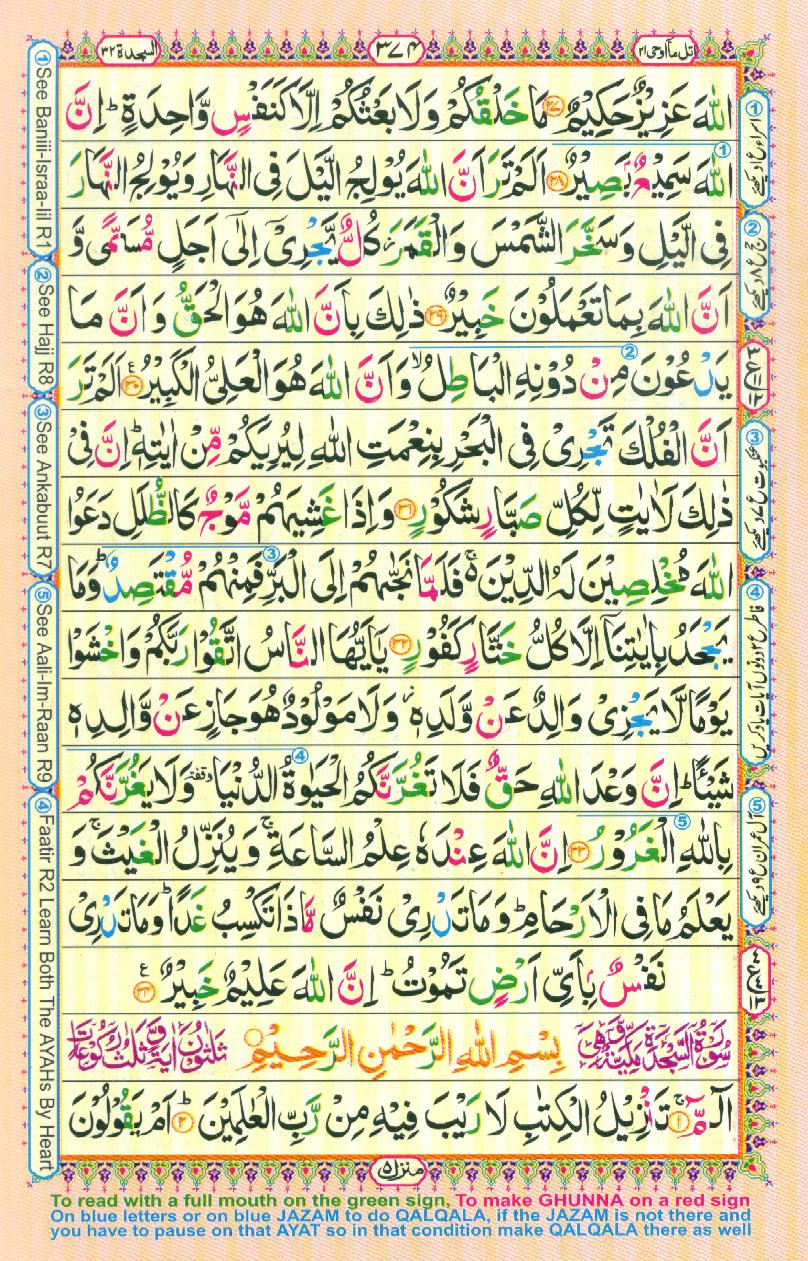 اتل مآ اوحی ۲۱
۳۷۴
السجدة ۳۲
اللّٰهَ عَزِیْزٌ حَكِیْمٌ ﴿۲۷﴾ مَا خَلْقُكُمْ وَلَا بَعْثُكُمْ اِلَّا كَنَفْسٍ وَّاحِدَةٍ ؕ اِنَّ
اللّٰهَ سَمِیْعٌۢ بَصِیْرٌ ﴿۲۸﴾ اَلَمْ تَرَ اَنَّ اللّٰهَ یُوْلِجُ الَّیْلَ فِی النَّهَارِ وَیُوْلِجُ النَّهَارَ
فِی الَّیْلِ وَسَخَّرَ الشَّمْسَ وَالْقَمَرَ ؗ كُلٌّ یَّجْرِیْۤ اِلٰۤی اَجَلٍ مُّسَمًّی وَّ
اَنَّ اللّٰهَ بِمَا تَعْمَلُوْنَ خَبِیْرٌ ﴿۲۹﴾ ذٰلِكَ بِاَنَّ اللّٰهَ هُوَ الْحَقُّ وَ اَنَّ مَا
یَدْعُوْنَ مِنْ دُوْنِهِ الْبَاطِلُ ۙ وَاَنَّ اللّٰهَ هُوَ الْعَلِیُّ الْكَبِیْرُ ﴿۳۰﴾ اَلَمْ تَرَ
اَنَّ الْفُلْكَ تَجْرِیْ فِی الْبَحْرِ بِنِعْمَتِ اللّٰهِ لِیُرِیَكُمْ مِّنْ اٰیٰتِهٖ ؕ اِنَّ فِیْ
ذٰلِكَ لَاٰیٰتٍ لِّكُلِّ صَبَّارٍ شَكُوْرٍ ﴿۳۱﴾ وَاِذَا غَشِیَهُمْ مَّوْجٌ كَالظُّلَلِ دَعَوُا
اللّٰهَ مُخْلِصِیْنَ لَهُ الدِّیْنَ ۚ۬ فَلَمَّا نَجّٰىهُمْ اِلَی الْبَرِّ فَمِنْهُمْ مُّقْتَصِدٌ ؕ وَمَا
یَجْحَدُ بِاٰیٰتِنَاۤ اِلَّا كُلُّ خَتَّارٍ كَفُوْرٍ ﴿۳۲﴾ یٰۤاَیُّهَا النَّاسُ اتَّقُوْا رَبَّكُمْ وَاخْشَوْا
یَوْمًا لَّا یَجْزِیْ وَالِدٌ عَنْ وَّلَدِهٖ ؗ وَلَا مَوْلُوْدٌ هُوَ جَازٍ عَنْ وَّالِدِهٖ
شَیْـًٔا ؕ اِنَّ وَعْدَ اللّٰهِ حَقٌّ فَلَا تَغُرَّنَّكُمُ الْحَیٰوةُ الدُّنْیَا ۥ وقفة وَلَا یَغُرَّنَّكُمْ
بِاللّٰهِ الْغَرُوْرُ ﴿۳۳﴾ اِنَّ اللّٰهَ عِنْدَهٗ عِلْمُ السَّاعَةِ ۚ وَیُنَزِّلُ الْغَیْثَ ۚ وَ
یَعْلَمُ مَا فِی الْاَرْحَامِ ؕ وَمَا تَدْرِیْ نَفْسٌ مَّاذَا تَكْسِبُ غَدًا ؕ وَمَا تَدْرِیْ
نَفْسٌۢ بِاَیِّ اَرْضٍ تَمُوْتُ ؕ اِنَّ اللّٰهَ عَلِیْمٌ خَبِیْرٌ ﴿۳۴﴾ ع
سُوْرَةُ السَّجْدَةِ مَكِّیَّةٌ وَّهِیَ بِسْمِ اللّٰهِ الرَّحْمٰنِ الرَّحِیْمِ ثَلٰثُوْنَ اٰیَةً وَّثَلٰثُ رُكُوْعَاتٍ
الٓمّٓ ﴿۱﴾ ۚ تَنْزِیْلُ الْكِتٰبِ لَا رَیْبَ فِیْهِ مِنْ رَّبِّ الْعٰلَمِیْنَ ﴿۲﴾ ؕ اَمْ یَقُوْلُوْنَ
منزل ۵
① See Baniii-Israa-iil R1
② See Hajj R8
③ See Ankabuut R7
⑤ See Aali-Im-Raan R9
④ Faatir R2 Learn Both The AYAHs By Heart
① اسراء ع ۱ دیکھئے
② حج ع ۸ دیکھئے
③ عنکبوت ع ۷ دیکھئے
④ فاطر ع ۲ دونوں آیات یاد کریں
⑤ آل عمران ع ۹ دیکھئے
To read with a full mouth on the green sign, To make GHUNNA on a red sign
On blue letters or on blue JAZAM to do QALQALA, if the JAZAM is not there and
you have to pause on that AYAT so in that condition make QALQALA there as well